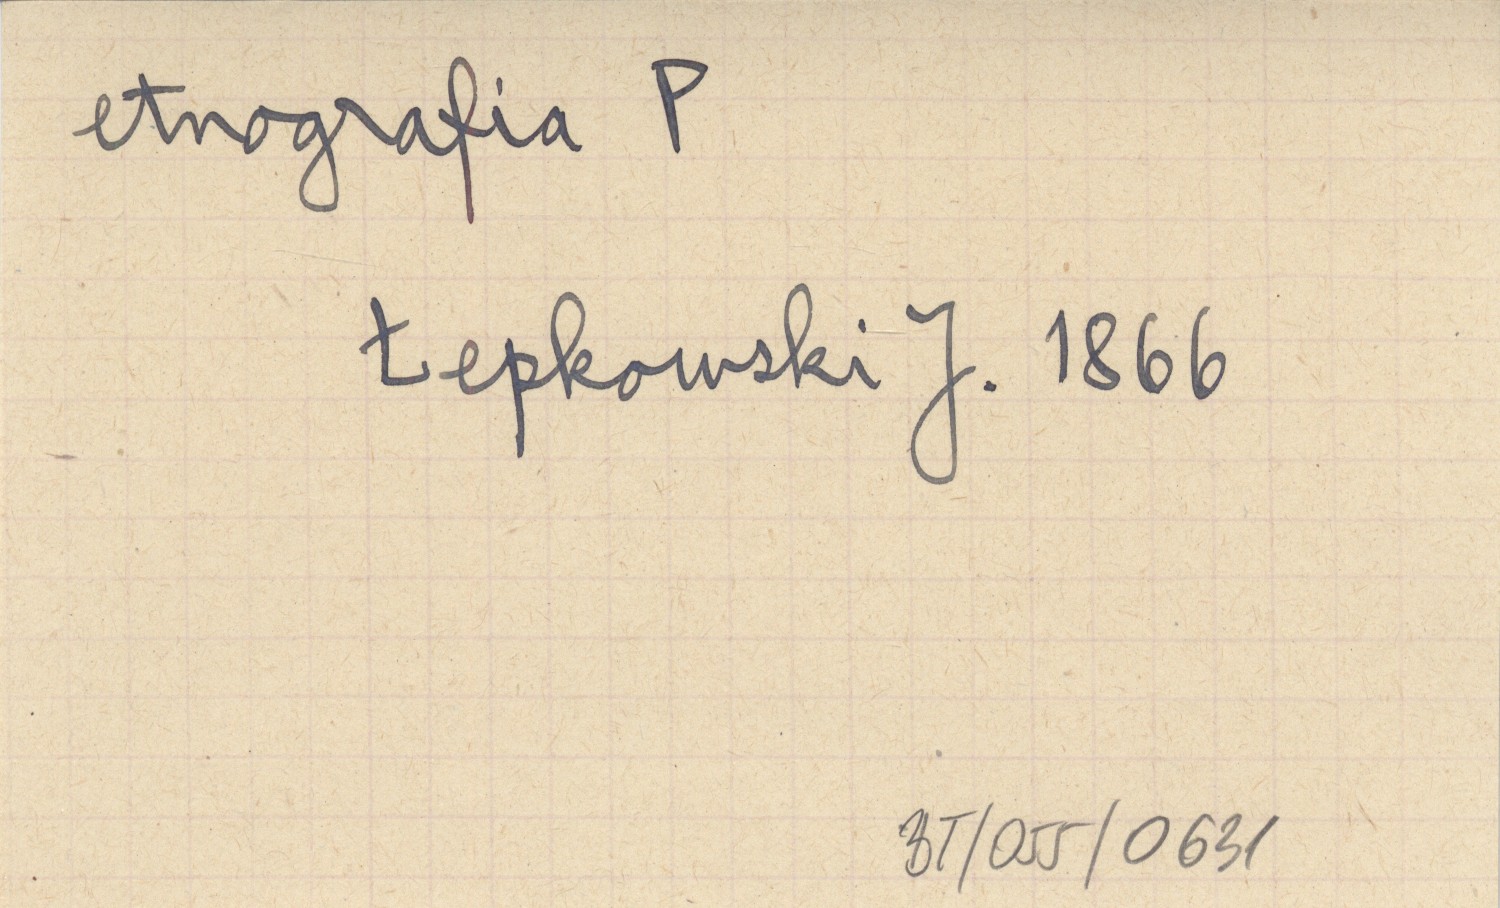 etnografia P
Łepkowski J. 1866
BT/055/0631